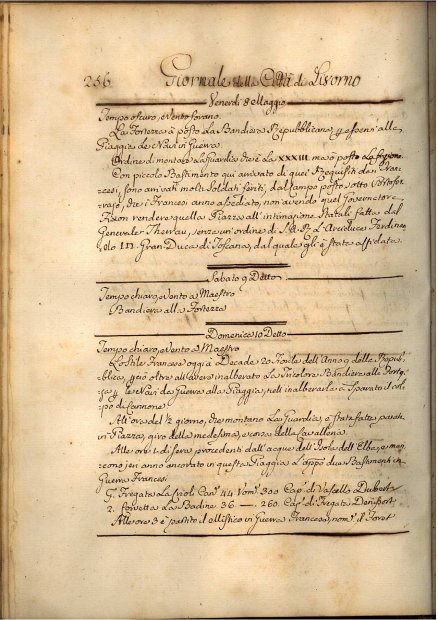 256. Giornale della Città di Livorno
Venerdì 8 Maggio
Tempo oscuro, e Vento fovano.
La Fortezza à posto La Bandiera Repubblicana, essenti alla
Piaggia Le Navi in Guerra.
Ordine di montare La Guardia, che è La XXXIII. mà o posto La
Con piccolo Bastimento qui arrivato di quei requisiti da Fran
cesi, sono arrivati molti Soldati feriti, dal campo posto sotto Portofer
rajo, che i Francesi anno assediato, non avendo quel Governatore
voluto rendere quella Piazza all'intimazione Statali fatta dal
Generale senza un ordine di S. A. R. L'Arciduca Ferdinan
do III. Gran Duca di Toscana, dal quale gli è stata affidata.
Sabato 9 Detto
Tempo chiaro, Vento a Maestro
Bandiera alla Fortezza
Domenica 10 Detto
Tempo chiaro, e Vento a Maestro
Lo Stile Francese oggi à Decade 20 Fiorile dell'Anno 9 della Repub
blica, e ciò oltre all'avere inalberato La Tricolore Bandiera alla Fortez
za, e le Navi da Guerra alla Piaggia, nell'inalberarla à sparato il col
po di Cannone.
All'ora del ½ giorno, che montano La Guardia, è stata fatta parata
in Piazza, giro della medesima, e corso della Cavalleria.
Alle ore 1. di sera, procedenti dall'acque dell'Isola dell'Elba,
anno ancorato in questa Piaggia L'appo due Bastimenti in
Guerra Francesi
G. Fregata Can.i 44 Uom.i 300 Cap.o di Vascello
2. Corvetta La Badine 36 — 260. Cap.o di Fregata
Alle ore 3 è partito il in Guerra Francese, nom.o il Foret